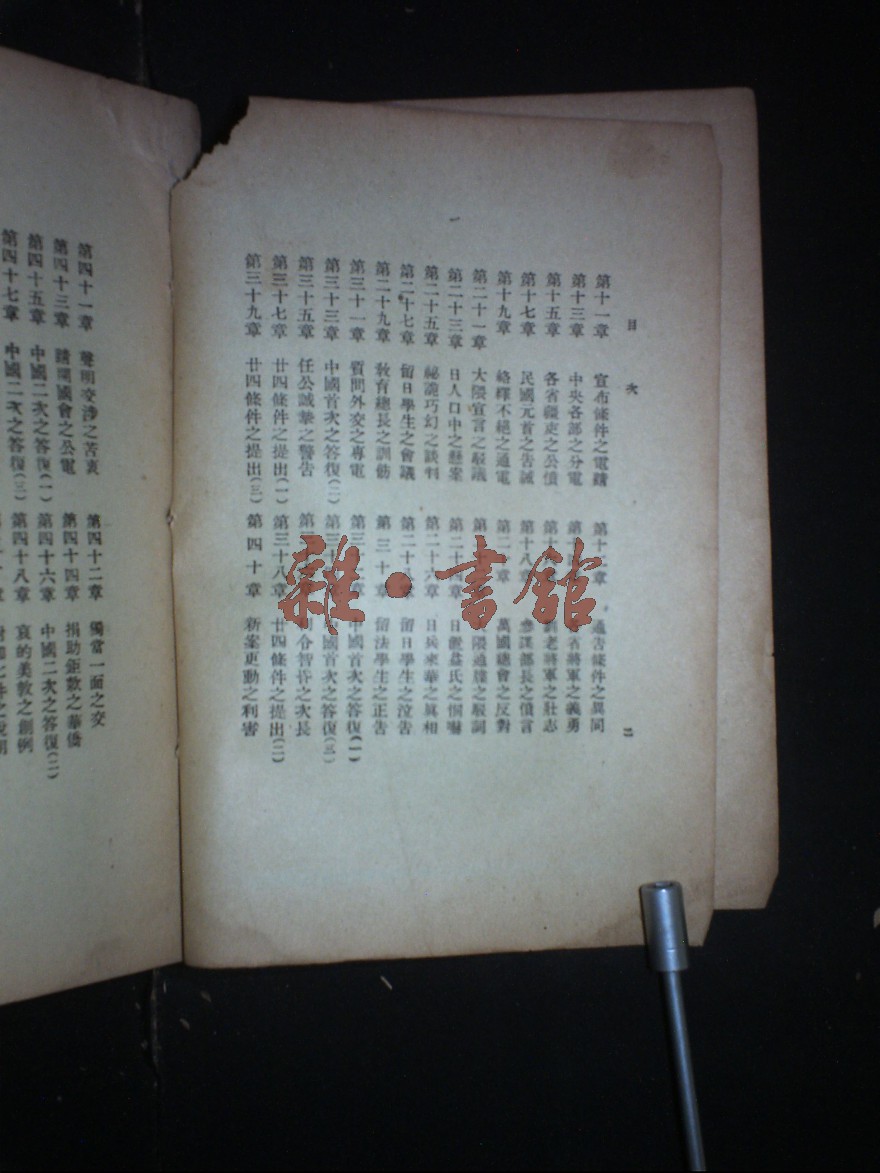 目次
二
第十一章 宣布條件之電請
第十二章 通告條件之異同
第十三章 中央各部之分電
第十 章 省將軍之義勇
第十五章 各省疆吏之公憤
第十 將軍之壯志
第十七章 民國元首之告誡
第十八 參謀部長之憤言
第十九章 絡繹不絕之通電
第二 章 萬國總會之反對
第二十一章 大隈宣言之駁議
第二十 隈通牒之駁詞
第二十三章 日人口中之懸案
第二十四章 日 益氏之恫嚇
第二十五章 祕詭巧幻之談判
第二十六章 日兵來華之真相
第二十七章 留日學生之會議
第二十八章 留日學生之泣告
第二十九章 教育總長之訓飭
第三十章 留法學生之正告
第三十一章 質問外交之專電
第三 中國首次之答復(一)
第三十三章 中國首次之答復(二)
第三 國首次之答復(三)
第三十五章 任公誠摯之警告
第三 令智昏之次長
第三十七章 廿四條件之提出(一)
第三十八章 廿四條件之提出(二)
第三十九章 廿四條件之提出(三)
第四十章 新案更動之利害
第四十一章 聲明交涉之苦衷
第四十二章 獨當一面之交
第四十三章 請開國會之公電
第四十四章 捐助鉅款之華僑
第四十五章 中國二次之答復(一)
第四十六章 中國二次之答復(二)
第四十七章 中國二次之答復(三)
第四十八章 哀的美敦之創例
雜·書館